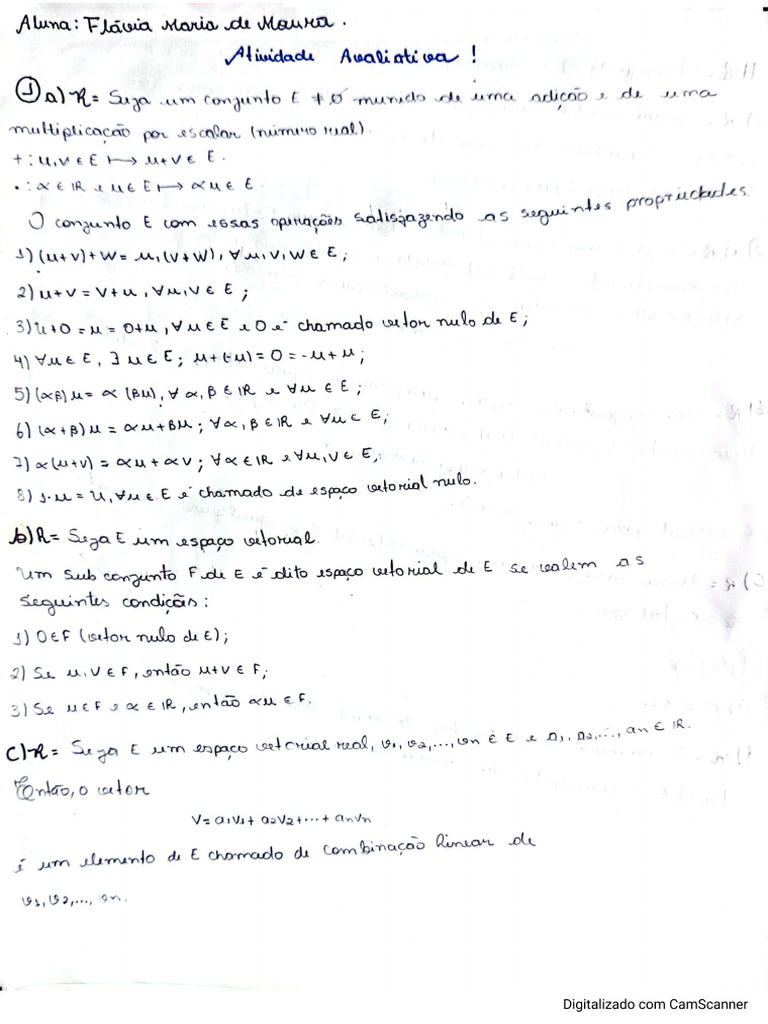 Aluna: Flávia Maria de Moura.
Atividade Avaliativa!
① a) R = Seja um conjunto E ≠ ∅ munido de uma adição e de uma
multiplicação por escalar (número real).
+ : u, v ∈ E ↦ u+v ∈ E.
• : α ∈ ℝ e u ∈ E ↦ αu ∈ E.
O conjunto E com essas operações satisfazendo as seguintes propriedades:
1) (u+v)+w = u, (v+w), ∀ u, v, w ∈ E;
2) u+v = v+u, ∀u, v ∈ E;
3) u+0 = u = 0+u, ∀u ∈ E e 0 é chamado vetor nulo de E;
4) ∀u ∈ E, ∃ u ∈ E; u+(-u) = 0 = -u+u;
5) (αβ)u = α (βu), ∀ α, β ∈ ℝ e ∀u ∈ E;
6) (α+β)u = αu+βu; ∀α, β ∈ ℝ e ∀u ∈ E;
7) α(u+v) = αu + αv; ∀α ∈ ℝ e ∀u, v ∈ E;
8) 1·u = u, ∀u ∈ E é chamado de espaço vetorial nulo.
b) R = Seja E um espaço vetorial.
Um sub conjunto F de E é dito espaço vetorial de E se valem as
seguintes condições:
1) 0 ∈ F (vetor nulo de E);
2) Se u, v ∈ F, então u+v ∈ F;
3) Se u ∈ F e α ∈ ℝ, então αu ∈ F.
c) R = Seja E um espaço vetorial real, v1, v2, ..., vn ∈ E e a1, a2, ..., an ∈ ℝ.
Então, o vetor
v = a1v1 + a2v2 + ... + anvn
é um elemento de E chamado de combinação linear de
v1, v2, ..., vn.
Digitalizado com CamScanner